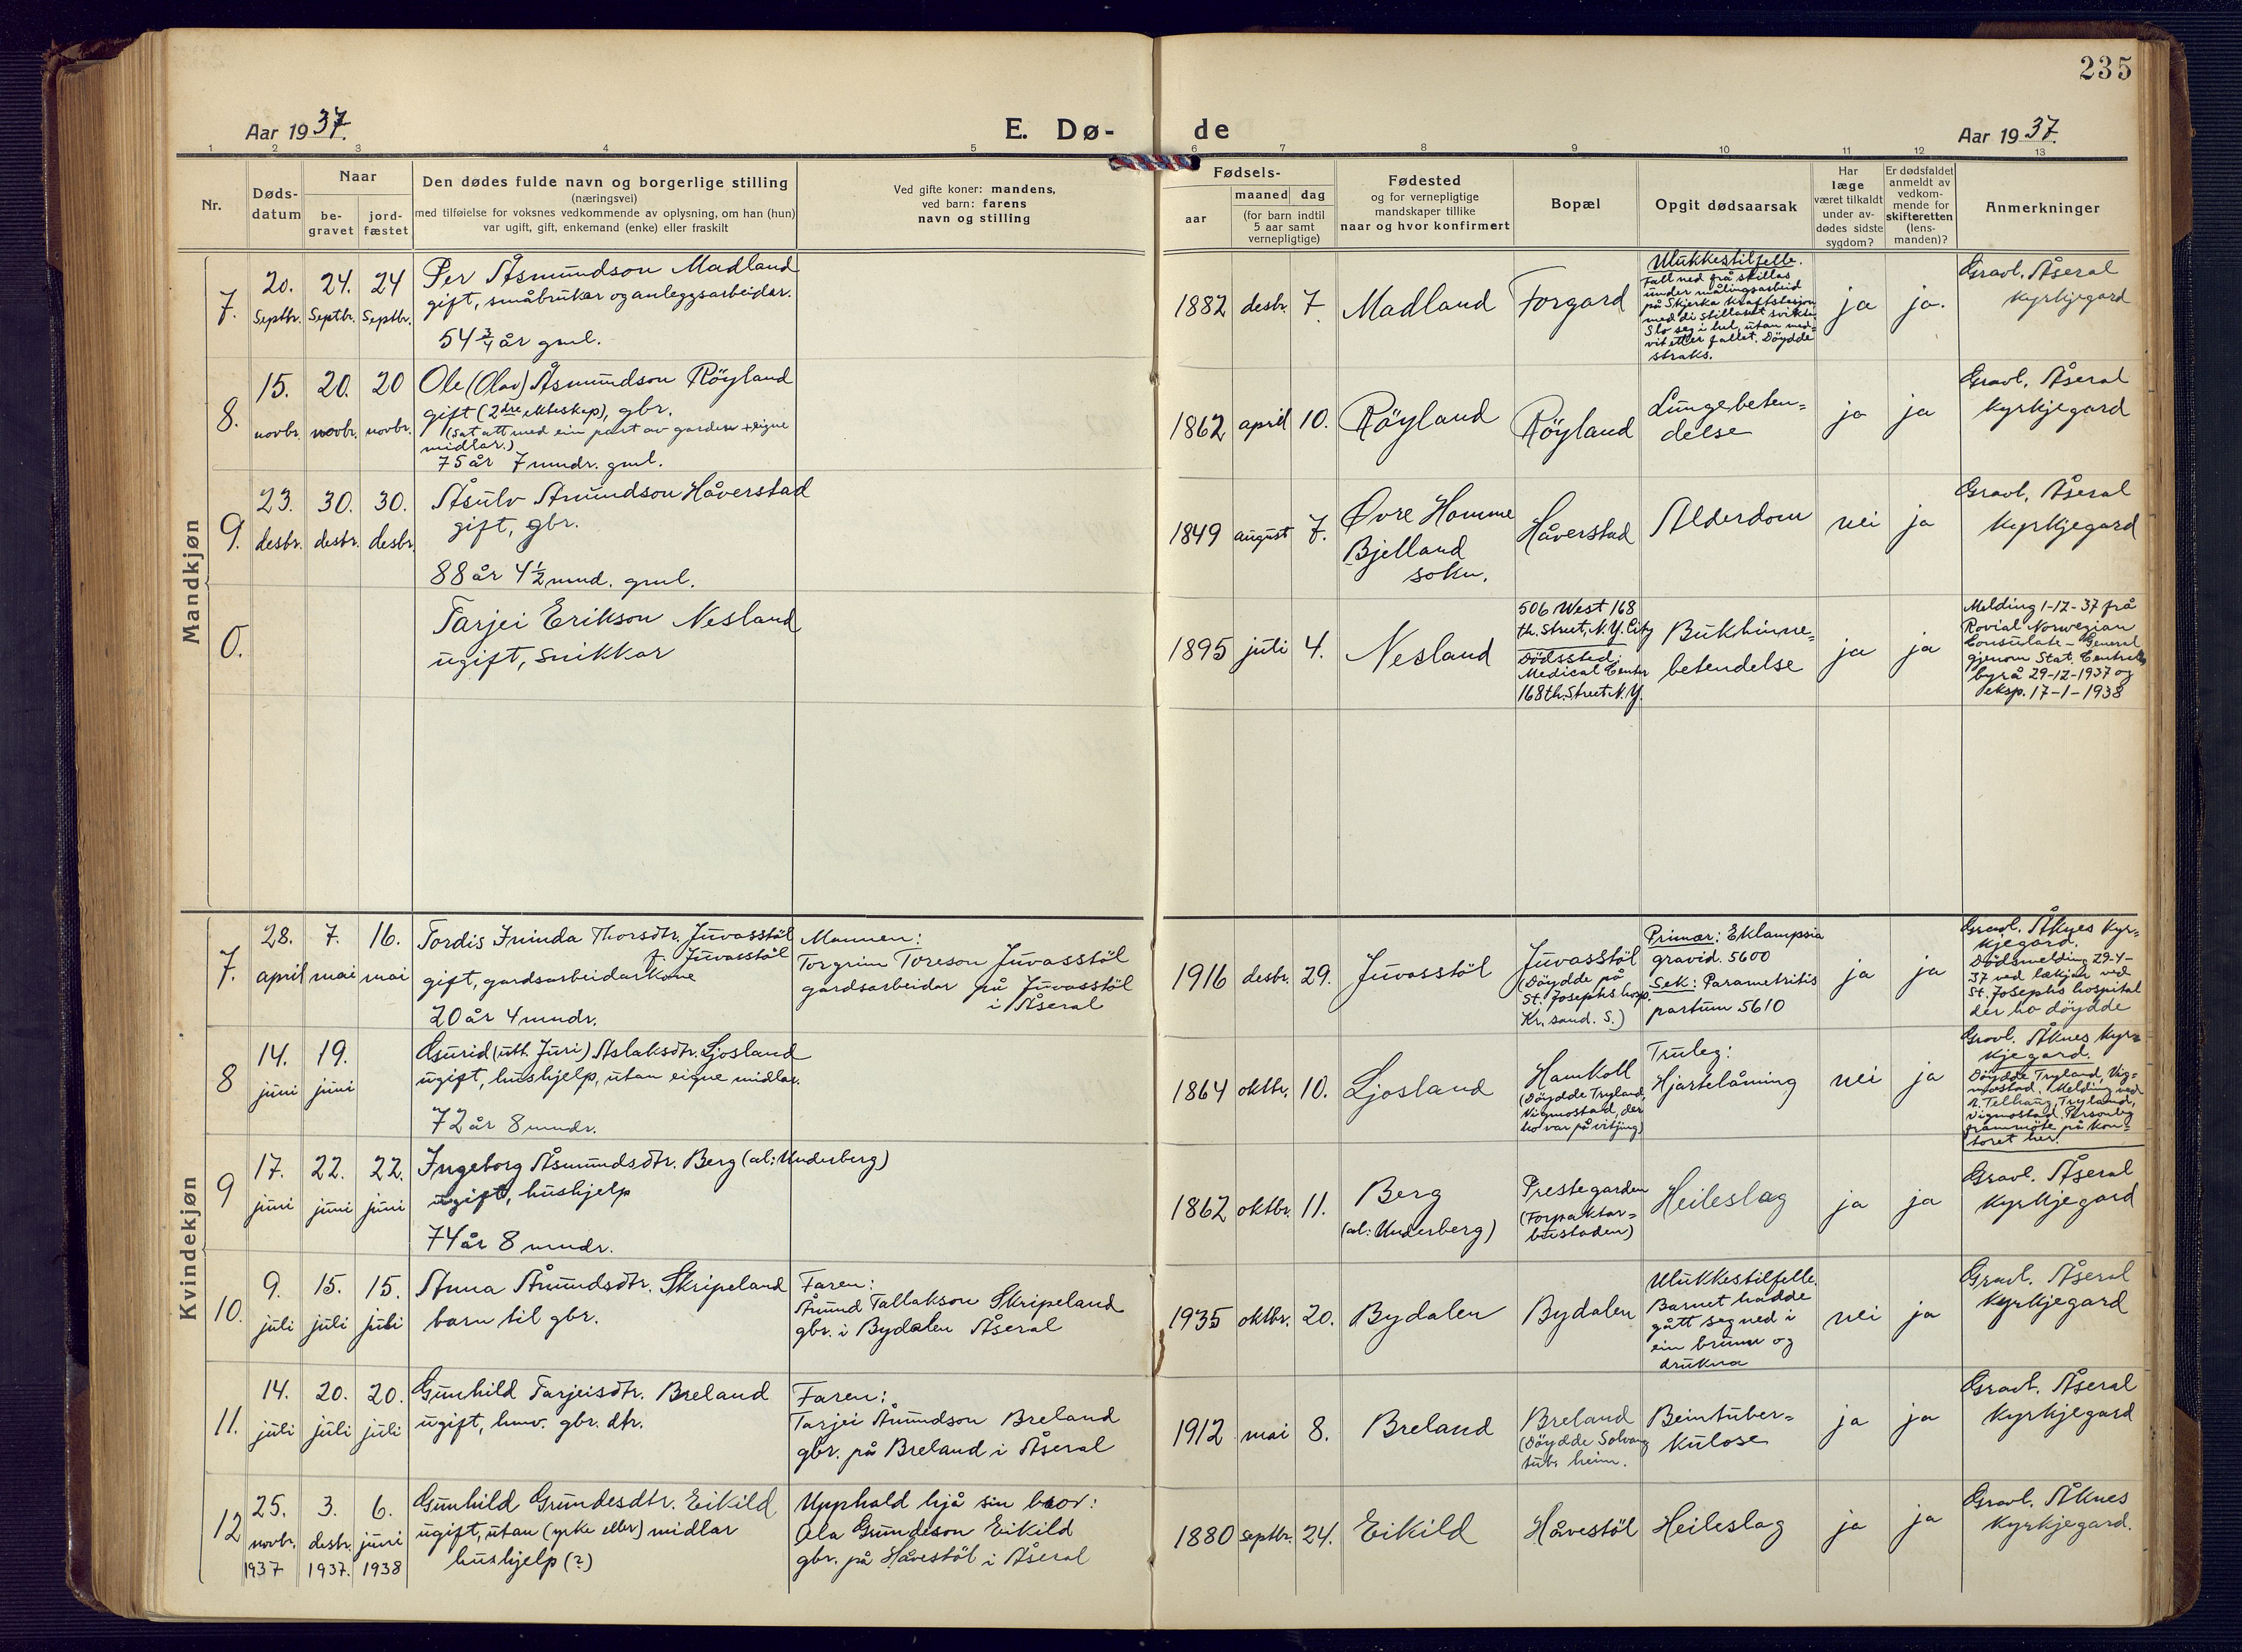 235
Aar 1937.
E. Dø-
de
Aar 1937.
1 2 3 4 5 6 7 8 9 10 11 12 13
Nr.
Døds-
datum
Naar
be-
gravet
jord-
fæstet
Den dødes fulde navn og borgerlige stilling
(næringsvei)
med tilføielse for voksnes vedkommende av oplysning, om han (hun)
var ugift, gift, enkemand (enke) eller fraskilt
Ved gifte koner: mandens,
ved barn: farens
navn og stilling
Fødsels-
aar
maaned dag
(for barn indtil
5 aar samt
vernepligtige)
Fødested
og for vernepligtige
mandskaper tillike
naar og hvor konfirmert
Bopæl
Opgit dødsaarsak
Har
læge
været tilkaldt
under av-
dødes sidste
sygdom?
Er dødsfaldet
anmeldt av
vedkom-
mende for
skifteretten
(lens-
manden)?
Anmerkninger
Mandkjøn
7.
20.
Septbr.
24.
Septbr.
24
Septbr.
Per Åsmundson Madland
gift, småbrukar og anleggsarbeidar.
54 3/4 år gml.
1882 desbr. 7.
Madland
Forgard
Ulukkestilfelle.
Fall ned frå stillas
under målingsarbeid
på Skjerka Kraftstasjon
med di stillaset svikta
Slo seg i hel, utan med-
vit etter fallet. Döydde
straks.
ja
ja.
Gravl. Åseral
kyrkjegard
8.
15.
novbr.
20.
novbr.
20
novbr.
Ole (Olav) Åsmundson Röyland
gift (2dre ekteskap), gbr.
(Sat att med ein part av garden + eigne
midlar.)
75 år 7 mndr. gml.
1862 april 10.
Röyland
Röyland
Lungebeten-
delse
ja
ja
Gravl. Åseral
kyrkjegard
9.
23.
desbr.
30.
desbr.
30.
desbr
Åsulv Åmundson Håverstad
gift, gbr.
88 år 4 1/2 mnd. gml.
1849 august 7.
Øvre Homme
Bjelland
sokn.
Håverstad
Alderdom
nei
ja
Gravl, Åseral
kyrkjegard
0.
Tarjei Erikson Nesland
ugift, snikkar
1895 juli 4.
Nesland
506 West 168
th. Street, N.Y. City
Dödsstad:
Medical Center
168th. Street N.Y.
Bukhinne-
betendelse
ja
ja
Melding 1-12-37 frå
Rovial Norwegian
Consulate - General
gjenom Stat. Centrale
byrå 29-12-1937 og
eksp. 17-1-1938
Kvindekjøn
7.
28.
april
7.
mai
16.
mai
Tordis Irinda Thorsdtr. Juvasstöl
f. Juvasstöl
gift, gardsarbeidarkone
20 år 4 mndr.
Mannen:
Torgrim Toreson Juvasstöl
gardsarbeidar på Juvasstöl
i Åseral
1916 desbr. 29.
Juvasstöl
Juvasstöl
(Döydde på
St. Josephs hosp.
Kr. sand. S.)
Primær: Eklampsia
gravid. 5600
Sek: Parametritis
partum 5610
ja
ja
Gravl. Åknes kyr-
kjegard.
Dödsmelding 29-4-
37 ved lækjar ved
St. Josephs hospital
der ho döydde
8
14.
juni
19.
juni
Gurid (utt. Juri) Aslaksdtr. Ljosland
ugift, hushjelp, utan eigne midlar.
72 år 8 mndr.
1864 oktbr. 10.
Ljosland
Hamkoll
(Döydde Tryland,
Vigmostad, der
ho var på vitjing)
Truleg:
Hjartelåming
nei
ja
Gravl. Åknes kyr-
kjegard.
Döydde Tryland, Vig-
mostad. Melding ved
Telhaug, Tryland,
Vigmostad. Personleg
frammöte på kon-
toret her.
9
17.
juni
22.
juni
22.
juni
Ingeborg Åsmundsdtr. Berg (al: Underberg)
ugift, hushjelp
74 år 8 mndr.
1862 oktbr. 11.
Berg
(al: Underberg)
Prestegarden
(Forpaktar-
bustaden)
Heileslag
ja
ja
Gravl. Åseral
kyrkjegard
10.
9.
juli
15.
juli
15.
juli
Anna Åmundsdtr. Skripeland
barn til gbr.
Faren:
Åmund Tallakson Skripeland
gbr. i Bydalen Åseral
1935 oktbr. 20.
Bydalen
Bydalen
Ulukkestilfelle.
Barnet hadde
gått seg ned i
ein brunn og
drukna
nei
ja
Gravl. Åseral
kyrkjegard
11.
14.
juli
20.
juli
20.
juli
Gunhild Tarjeisdtr. Breland
ugift, hmv. gbr. dtr.
Faren:
Tarjei Åmundson Breland
gbr. på Breland i Åseral
1912 mai 8.
Breland
Breland
(Döydde Solvang
tub. heim.
Beintuber-
kulose
ja
ja
Gravl. Åseral
kyrkjegard
12
25.
novbr.
1937
3.
desbr.
1937.
6.
juni
1938
Gunhild Grundesdtr. Eikild
ugift, utan (yrke eller) midlar
hushjelp (?)
Upphald hjå sin bror:
Ola Grundeson Eikild
gbr. på Håvestöl i Åseral
1880 septbr. 24.
Eikild
Håvestöl
Heileslag
ja
ja
Gravl. Åknes
kyrkjegard.